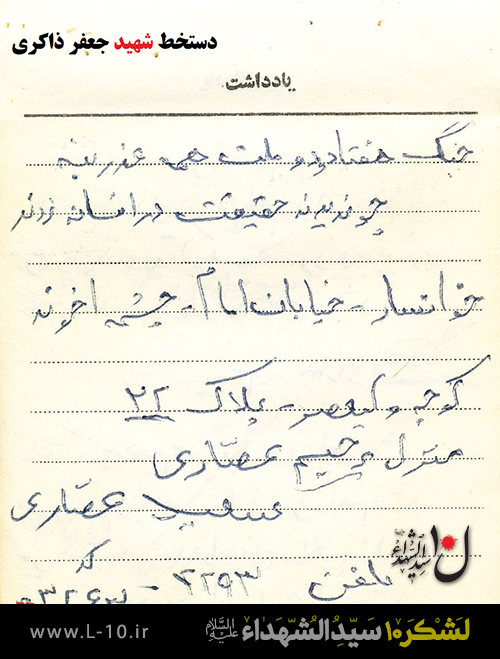 دستخط شهید جعفر ذاکری
یادداشت
جنگ هفتاد و دو ملت همه عذر بنه
چو ندیدند حقیقت در افسانه زدند
خوانسار - خیابان امام - چشمه آخوند
کوچه ولیعصر - پلاک ۳۲
منزل رحیم عصّاری
سعید عصّاری
تلفن ۲۲۹۳ -
کد
لشکر۱۰ سیدالشهداء
لَشگره۱۰ سَیِّدُ الشُّهَداء عَلَیْهِ السَّلام
www.L-10.ir